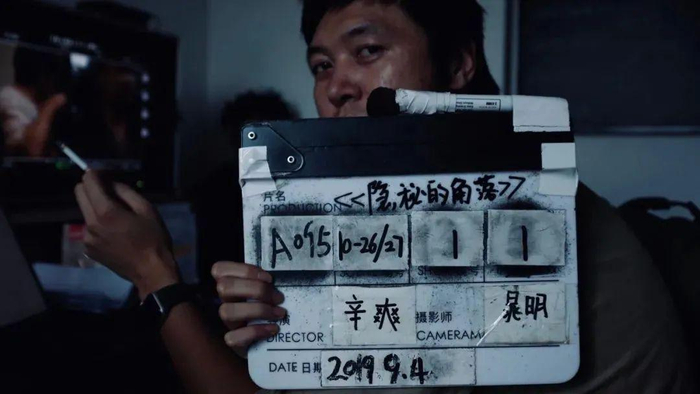 片名
PRODUCTION <<隐秘的角落>>
A095 10-26/27 1 1
辛爽 摄影师 晁明
DIRECTOR CAMERAM
DATE 日期 2019 9.4